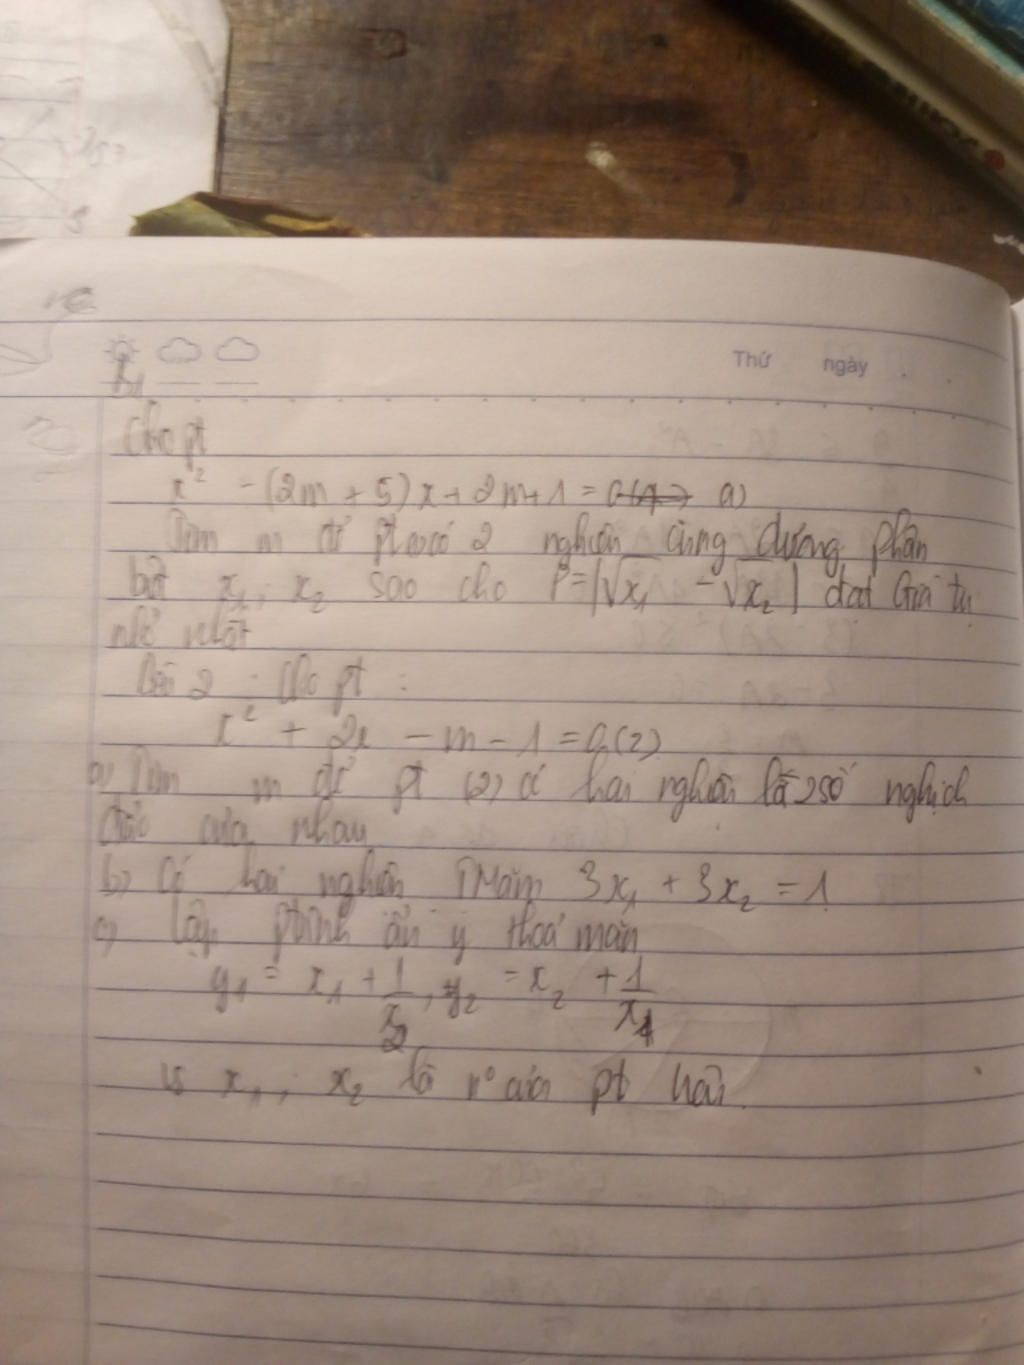 Thứ ngày
B1
Cho pt
x² - (2m + 5)x + 2m + 1 = 0 (1)
Tìm m để pt có 2 nghiệm cùng dương phân
biệt x₁, x₂ sao cho P = |√x₁ - √x₂| đạt Giá trị
nhỏ nhất
Bài 2 : Cho pt :
x² + 2x - m - 1 = 0 (2)
a) Tìm m để pt (2) có hai nghiệm là 2 số nghịch
đảo của nhau
b) Có hai nghiệm TMãn 3x₁ + 3x₂ = 1
c) lập ptrình ẩn y thoả mãn
y₁ = x₁ + 1/x₂, y₂ = x₂ + 1/x₁
vs x₁, x₂ là n° của pt